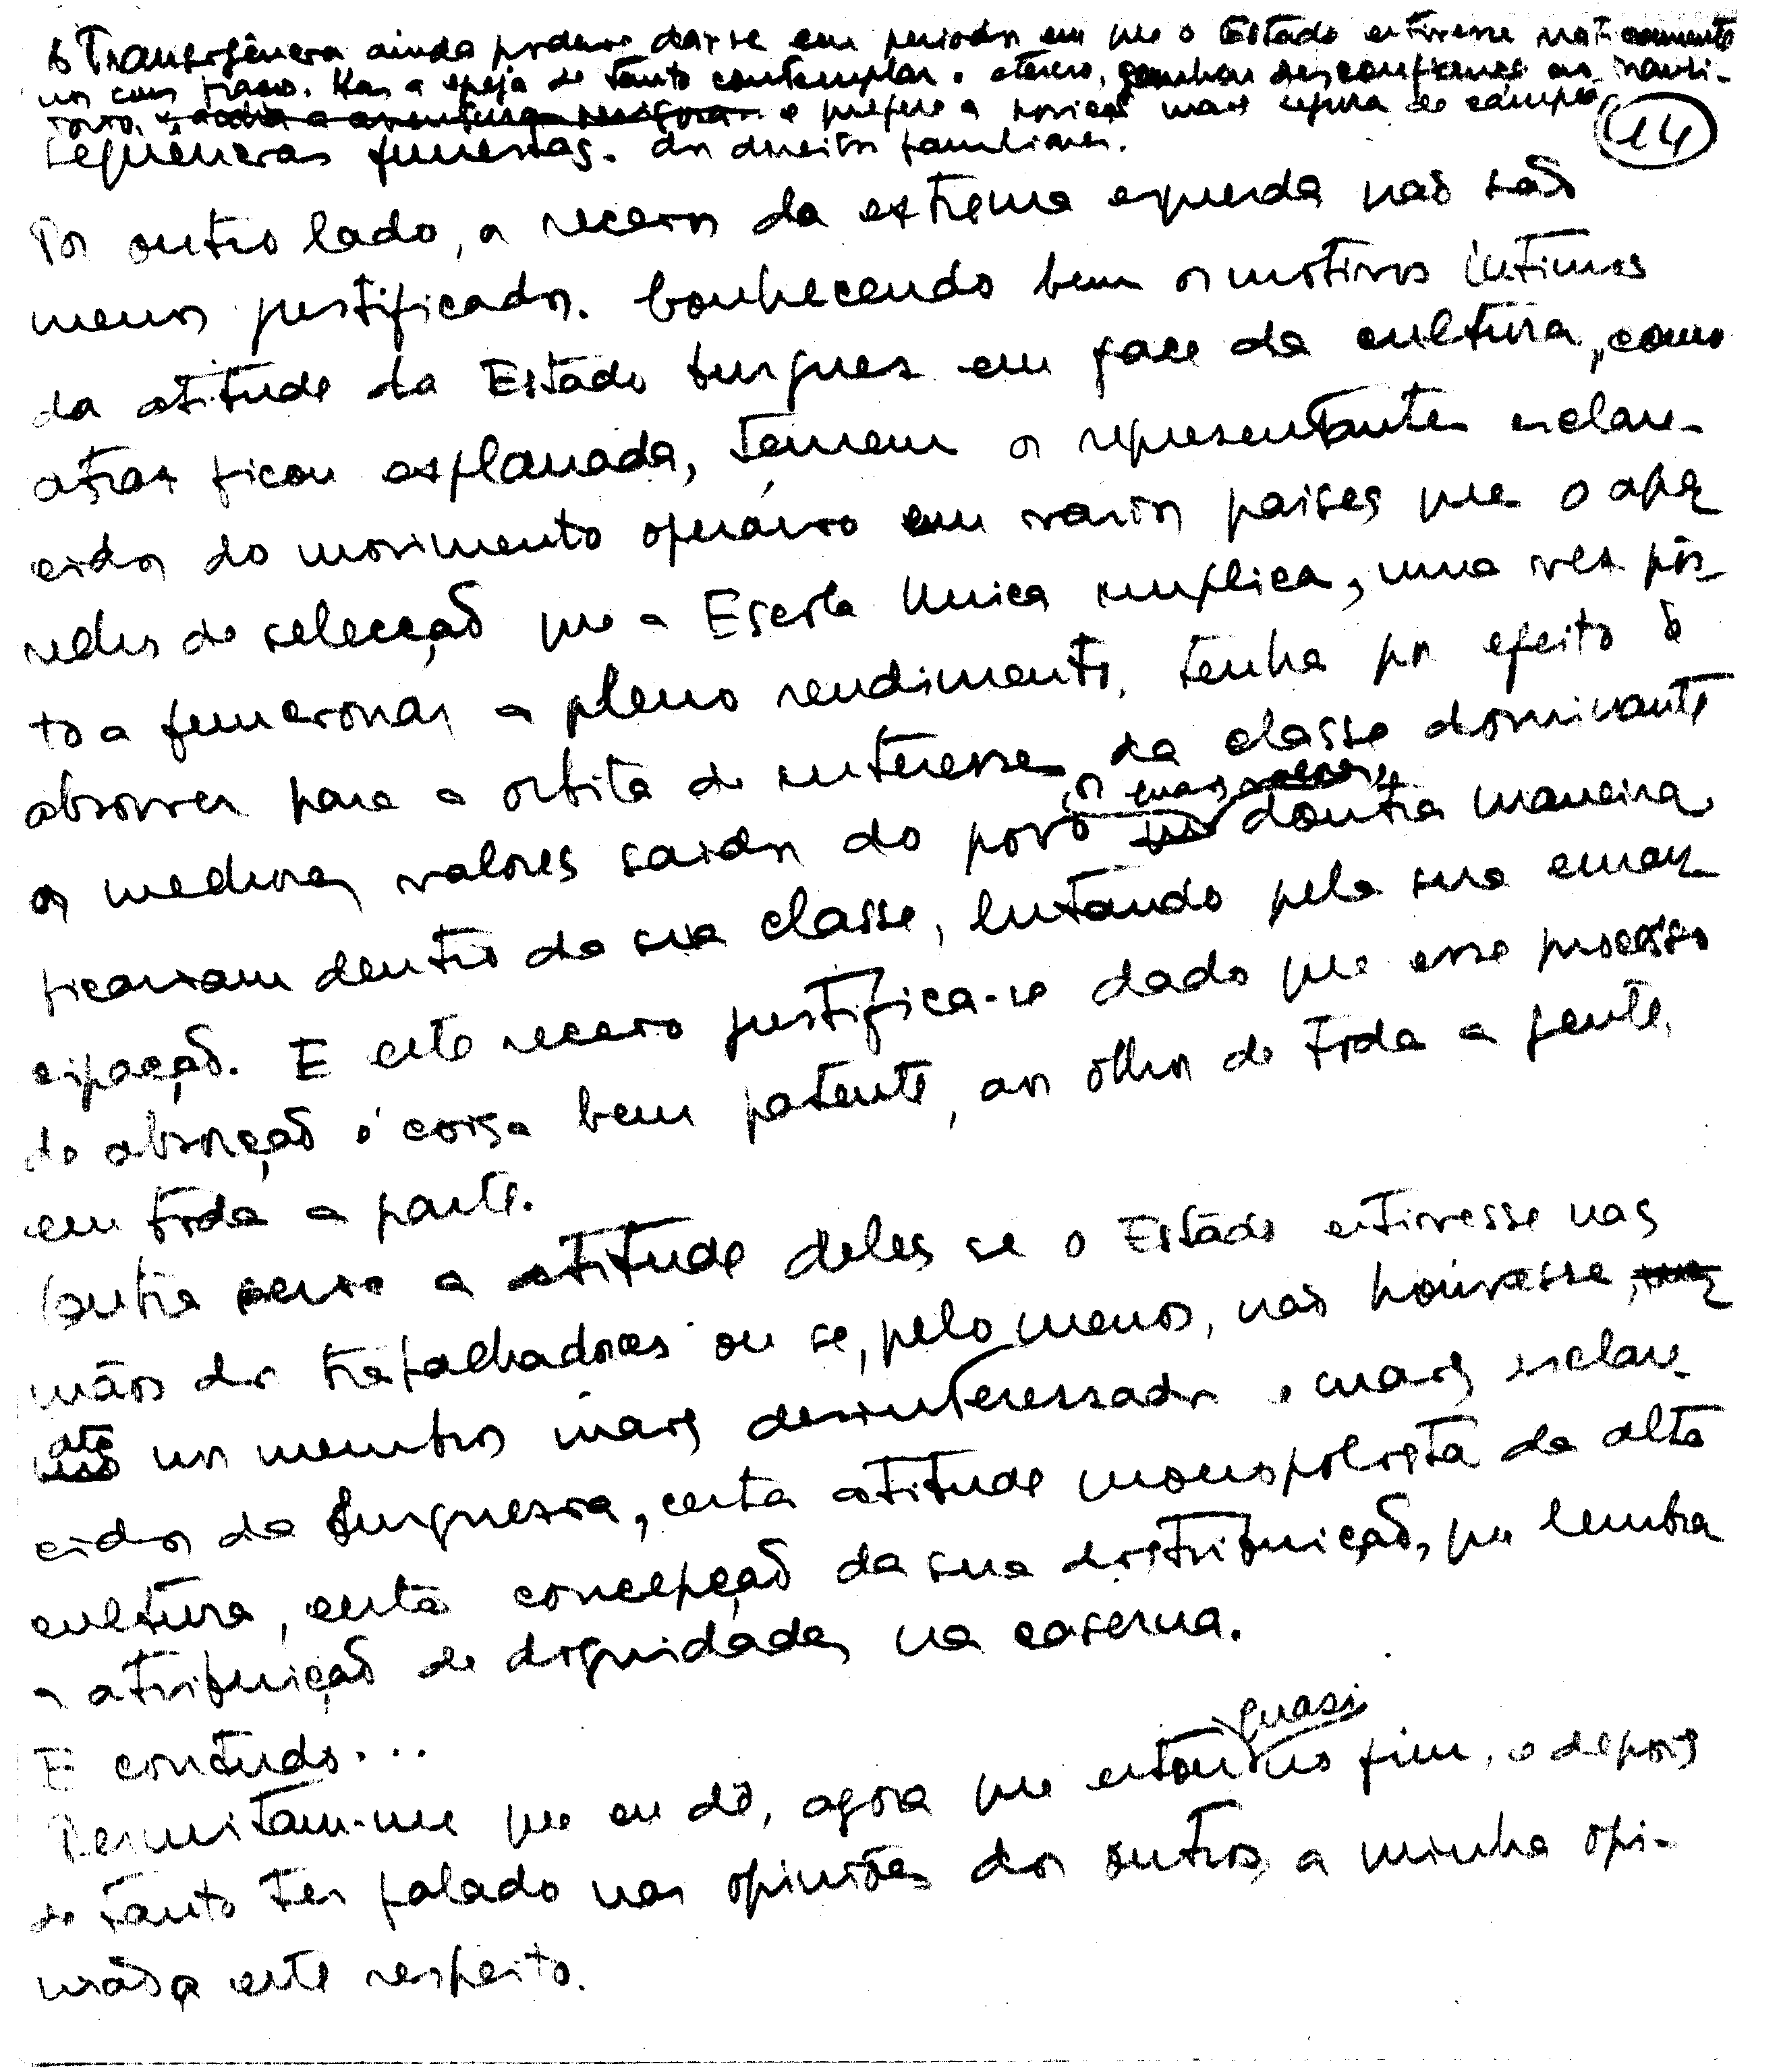 Transigência ainda poderia dar-se em períodos em que o Estado estivesse praticamente
nos seus braços. Mas a igreja de tanto contemplar o eterno, ganhou desconfiança ao transi-
tório, e prefere a posição mais segura de campeã
14
sequências funestas. dos direitos familiares.
Por outro lado, os receios da extrema esquerda não são
menos justificados. Conhecendo bem os motivos íntimos
da atitude do Estado burguês em face da cultura, como
atrás ficou explanada, temem os representantes esclare-
cidos do movimento operário em vários países que o apa-
relho de selecção que a Escola Unica implica, uma vez pôs-
to a funcionar a pleno rendimento, tenha por efeito o
absorver para a orbita de interesses da classe dominante
os melhores valores saidos do povo os quais doutra maneira
ficariam dentro da sua classe, lutando pela sua eman-
cipação. E este receio justifica-se dado que esse processo
de absorção é coisa bem patente, aos olhos de toda a gente,
em toda a parte.
Outra seria a atitude deles se o Estado estivesse nas
mãos dos trabalhadores ou se, pelo menos, não houvesse,
até nos membros mais desinteressados e mais esclare-
cidos da burguesia, certa atitude monopolista da alta
cultura, certa concepção da sua distribuição, que lembra
a atribuição de dignidades na caserna.
E contudo...
Permitam-me que eu dê, agora que estou quasi no fim, e depois
de tanto ter falado nas opiniões dos outros, a minha opi-
nião a este respeito.